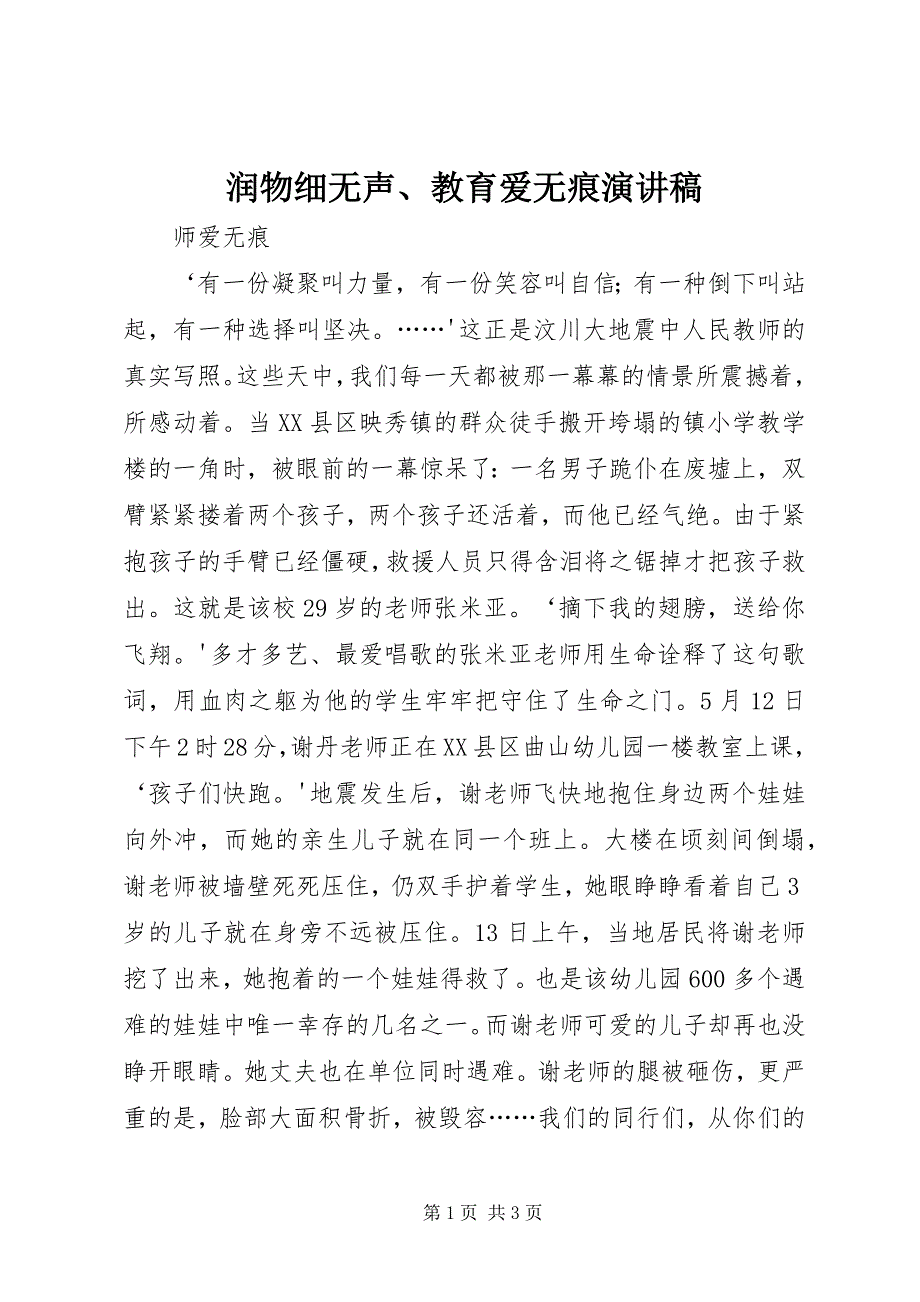 润物细无声、教育爱无痕演讲稿
师爱无痕
‘有一份凝聚叫力量，有一份笑容叫自信；有一种倒下叫站
起，有一种选择叫坚决。……'这正是汶川大地震中人民教师的
真实写照。这些天中，我们每一天都被那一幕幕的情景所震撼着，
所感动着。当 XX 县区映秀镇的群众徒手搬开垮塌的镇小学教学
楼的一角时，被眼前的一幕惊呆了：一名男子跪仆在废墟上，双
臂紧紧搂着两个孩子，两个孩子还活着，而他已经气绝。由于紧
抱孩子的手臂已经僵硬，救援人员只得含泪将之锯掉才把孩子救
出。这就是该校 29 岁的老师张米亚。‘摘下我的翅膀，送给你
飞翔。'多才多艺、最爱唱歌的张米亚老师用生命诠释了这句歌
词，用血肉之躯为他的学生牢牢把守住了生命之门。5 月 12 日
下午 2 时 28 分，谢丹老师正在 XX 县区曲山幼儿园一楼教室上课，
‘孩子们快跑。'地震发生后，谢老师飞快地抱住身边两个娃娃
向外冲，而她的亲生儿子就在同一个班上。大楼在顷刻间倒塌，
谢老师被墙壁死死压住，仍双手护着学生，她眼睁睁看着自己 3
岁的儿子就在身旁不远被压住。13 日上午，当地居民将谢老师
挖了出来，她抱着的一个娃娃得救了。也是该幼儿园 600 多个遇
难的娃娃中唯一幸存的几名之一。而谢老师可爱的儿子却再也没
睁开眼睛。她丈夫也在单位同时遇难。谢老师的腿被砸伤，更严
重的是，脸部大面积骨折，被毁容……我们的同行们，从你们的
第 1 页 共 3 页